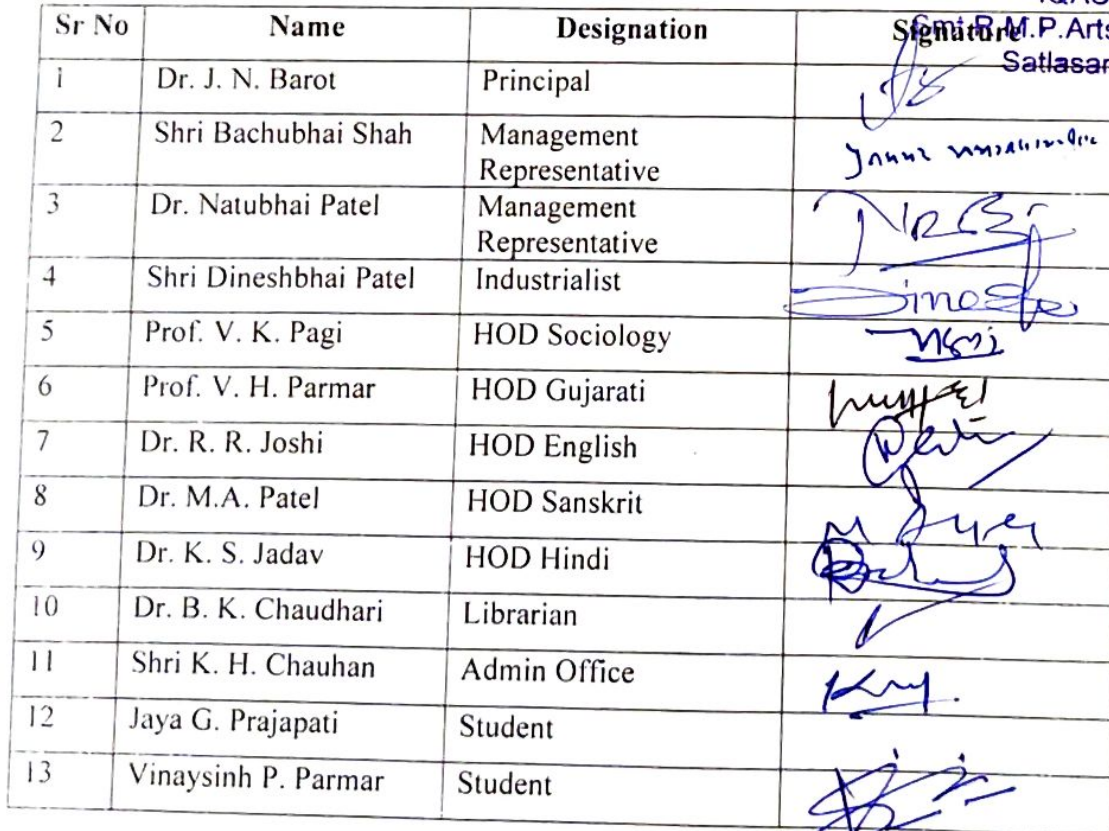 Sr No Name Designation Signature
Smt.R.M.P.Arts
Satlasan
1 Dr. J. N. Barot Principal
2 Shri Bachubhai Shah Management
Representative
3 Dr. Natubhai Patel Management
Representative
4 Shri Dineshbhai Patel Industrialist
5 Prof. V. K. Pagi HOD Sociology
6 Prof. V. H. Parmar HOD Gujarati
7 Dr. R. R. Joshi HOD English
8 Dr. M.A. Patel HOD Sanskrit
9 Dr. K. S. Jadav HOD Hindi
10 Dr. B. K. Chaudhari Librarian
11 Shri K. H. Chauhan Admin Office
12 Jaya G. Prajapati Student
13 Vinaysinh P. Parmar Student